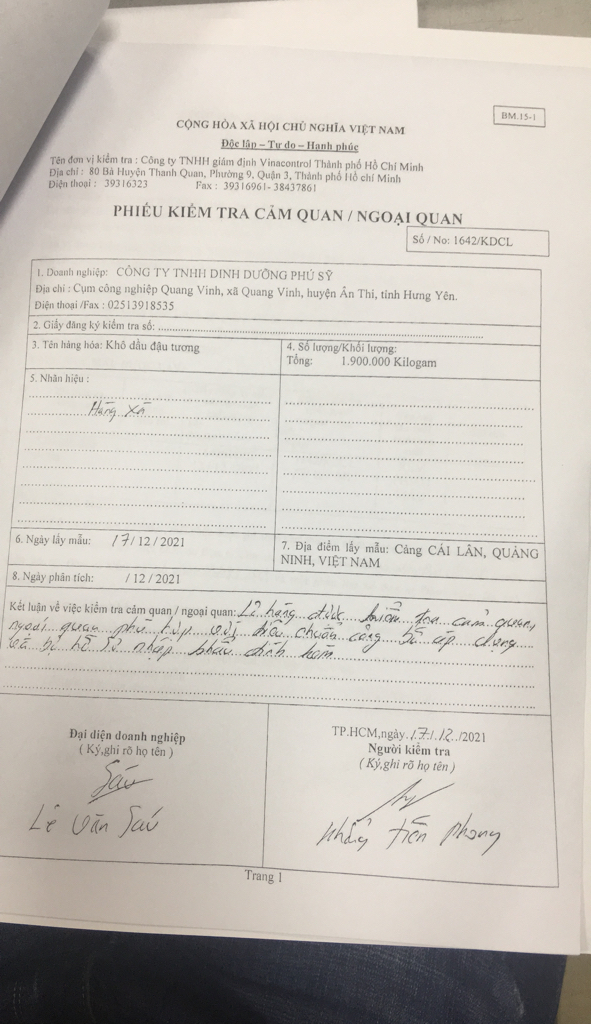 BM.15-1
CỘNG HÒA XÃ HỘI CHỦ NGHĨA VIỆT NAM
Độc lập – Tự do – Hạnh phúc
Tên đơn vị kiểm tra : Công ty TNHH giám định Vinacontrol Thành phố Hồ Chí Minh
Địa chỉ : 80 Bà Huyện Thanh Quan, Phường 9, Quận 3, Thành phố Hồ chí Minh
Điện thoại : 39316323 Fax : 39316961- 38437861
PHIẾU KIỂM TRA CẢM QUAN / NGOẠI QUAN
Số / No: 1642/KDCL
1. Doanh nghiệp: CÔNG TY TNHH DINH DƯỠNG PHÚ SỸ
Địa chỉ : Cụm công nghiệp Quang Vinh, xã Quang Vinh, huyện Ân Thi, tỉnh Hưng Yên.
Điện thoại /Fax : 02513918535
2. Giấy đăng ký kiểm tra số:
3. Tên hàng hóa: Khô dầu đậu tương
4. Số lượng/Khối lượng:
Tổng: 1.900.000 Kilogam
5. Nhãn hiệu :
Hàng xá
6. Ngày lấy mẫu: 17/ 12 / 2021
7. Địa điểm lấy mẫu: Cảng CÁI LÂN, QUẢNG
NINH, VIỆT NAM
8. Ngày phân tích: / 12 / 2021
Kết luận về việc kiểm tra cảm quan / ngoại quan: Lô hàng được kiểm tra cảm quan,
ngoại quan phù hợp với tiêu chuẩn công bố áp dụng
và hồ sơ nhập khẩu đính kèm
Đại diện doanh nghiệp
( Ký,ghi rõ họ tên )
Sáu
Lê Văn Sáu
TP.HCM,ngày 17/12/2021
Người kiểm tra
( Ký,ghi rõ họ tên )
Tiến Phong
Trang 1